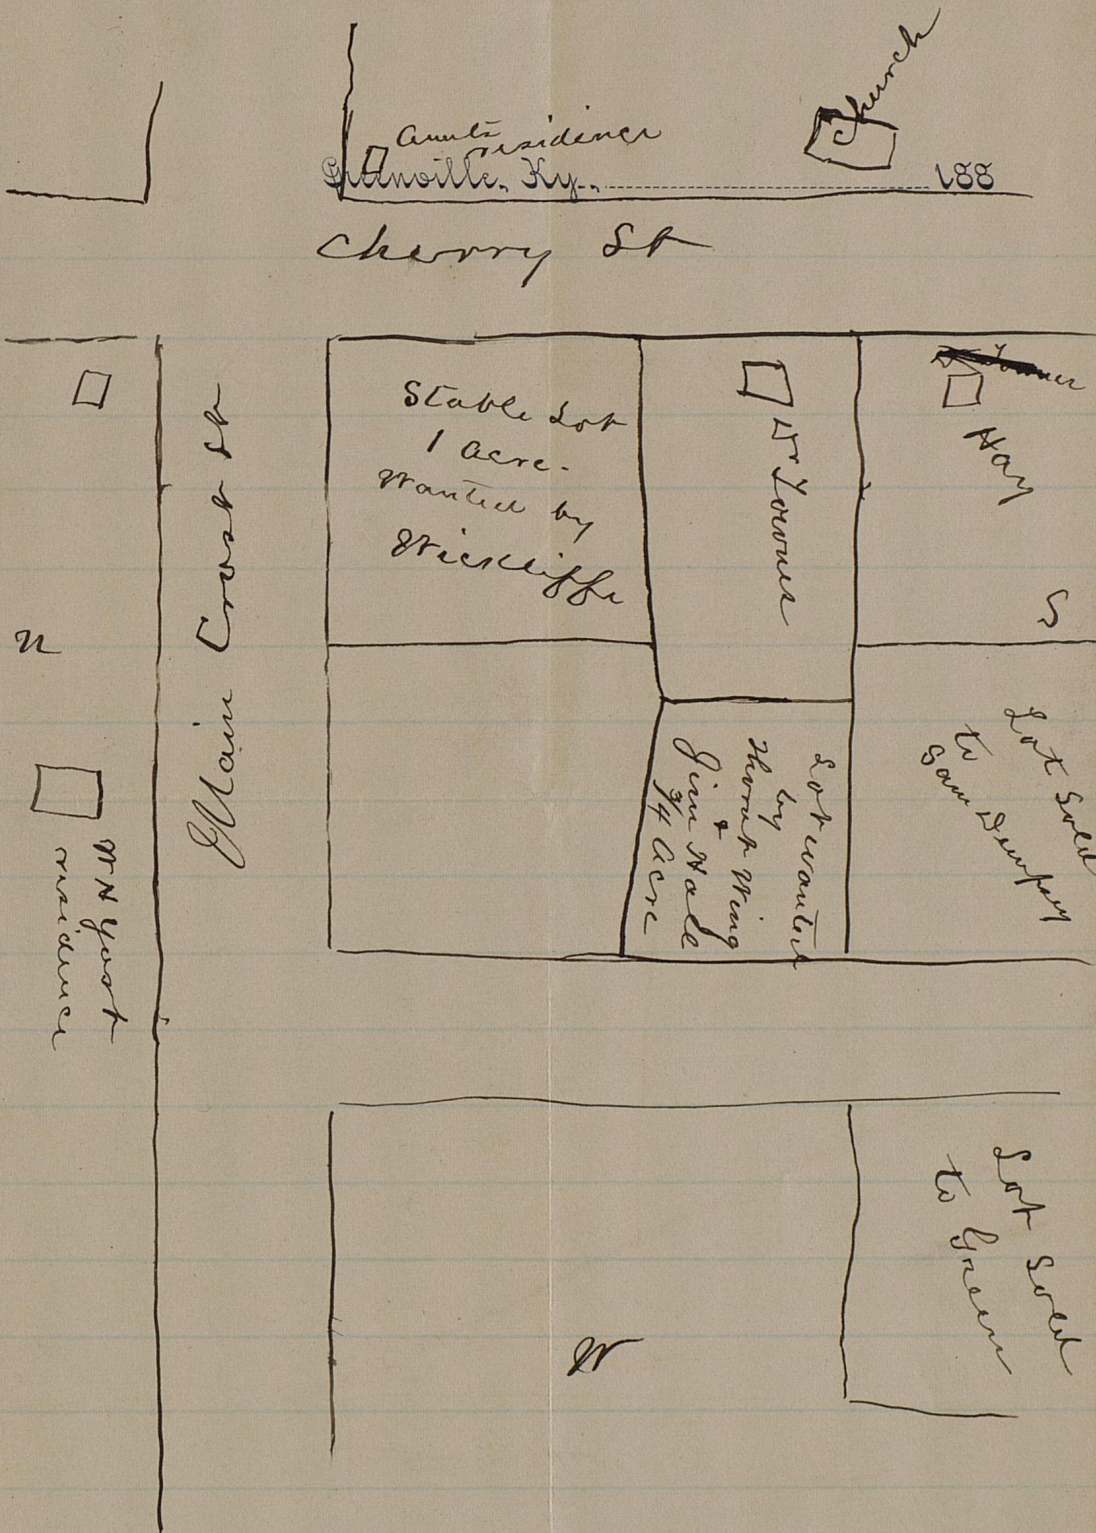 Church
Aunts
residence
Greenville, Ky., 188
Cherry St
Main Cross St
Stable Lot
1 acre.
Wanted by
Wickliffe
Dr Townes
Hay
S
n
W H Yost
residence
Lot wanted
by
Thomas Wing
&
Jim Hale
3/4 acre
Lot Sold
to
Sam Dempsey
Lot Sold
to Green
W